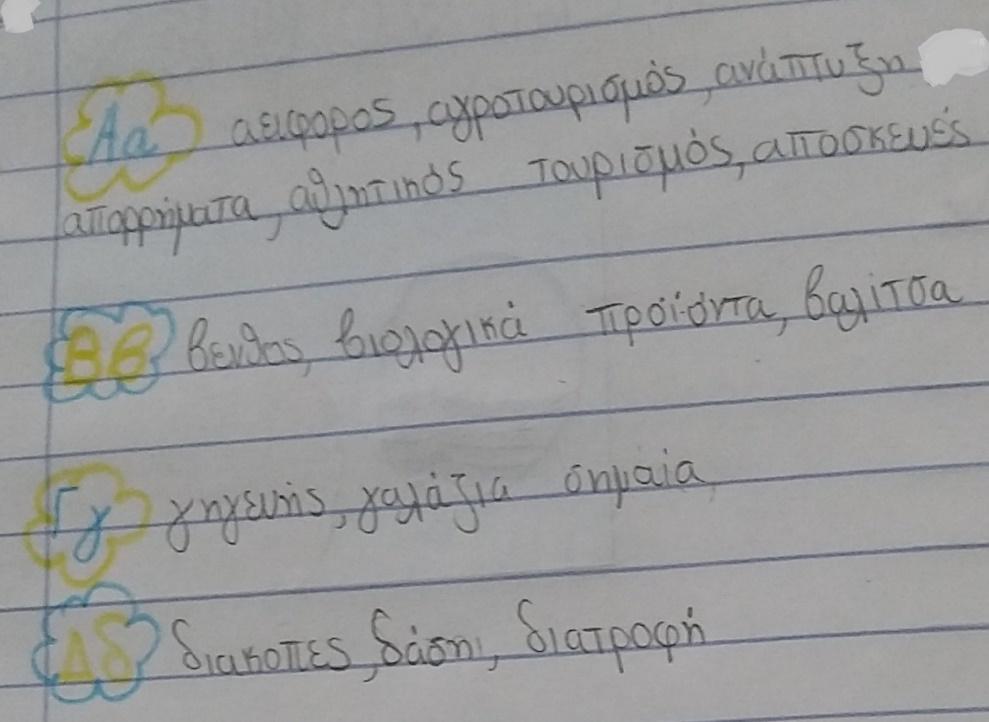 Αα αειφορος, αγροτουρισμός, ανάπτυξη
απορρήματα, αθλητικός τουρισμός, αποσκευές
Ββ βενθος, βιολογικά προϊόντα, βαλίτσα
Γγ γηγενής, γαλάζια σημαία
Δδ διακοπες, δάση, διατροφή